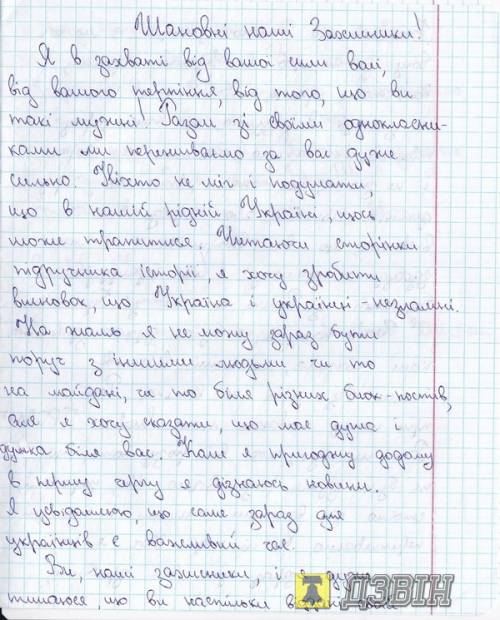 Шановні наші Захисники!
Я в захваті від вашої сили волі,
від вашого терпіння, від того, що ви
такі мужні! Разом зі своїми однокласни-
ками ми переживаємо за вас дуже
сильно. Ніхто не міг і подумати,
що в нашій рідній Україні, щось
може трапитися. Читаючи сторінки
підручника історії, я хочу зробити
висновок, що Україна і українці - незламні.
На жаль я не можу зараз бути
поруч з іншими людьми чи то
на майдані, чи то біля різних блок-постів,
але я хочу сказати, що моє душа і
думка біля вас. Коли я приходжу додому
в першу чергу я дізнаюсь новини.
Я усвідомлюю, що саме зараз для
українців є важливий час.
Ви, наші захисники, і я дуже
пишаюся, що ви наскільки
ДЗВІН